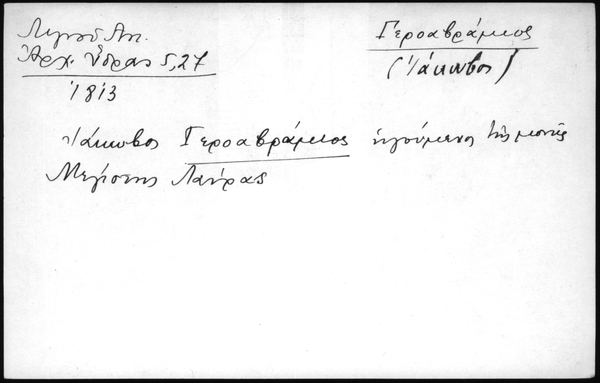 Λιγνοῦ Ἀν.
Ἀρχ. Ὕδρας 5,27
1813
Γεροαβράμιος
(Ἰάκωβος)
Ἰάκωβος Γεροαβράμιος ἡγούμενος τῆς μονῆς
Μεγίστης Λαύρας